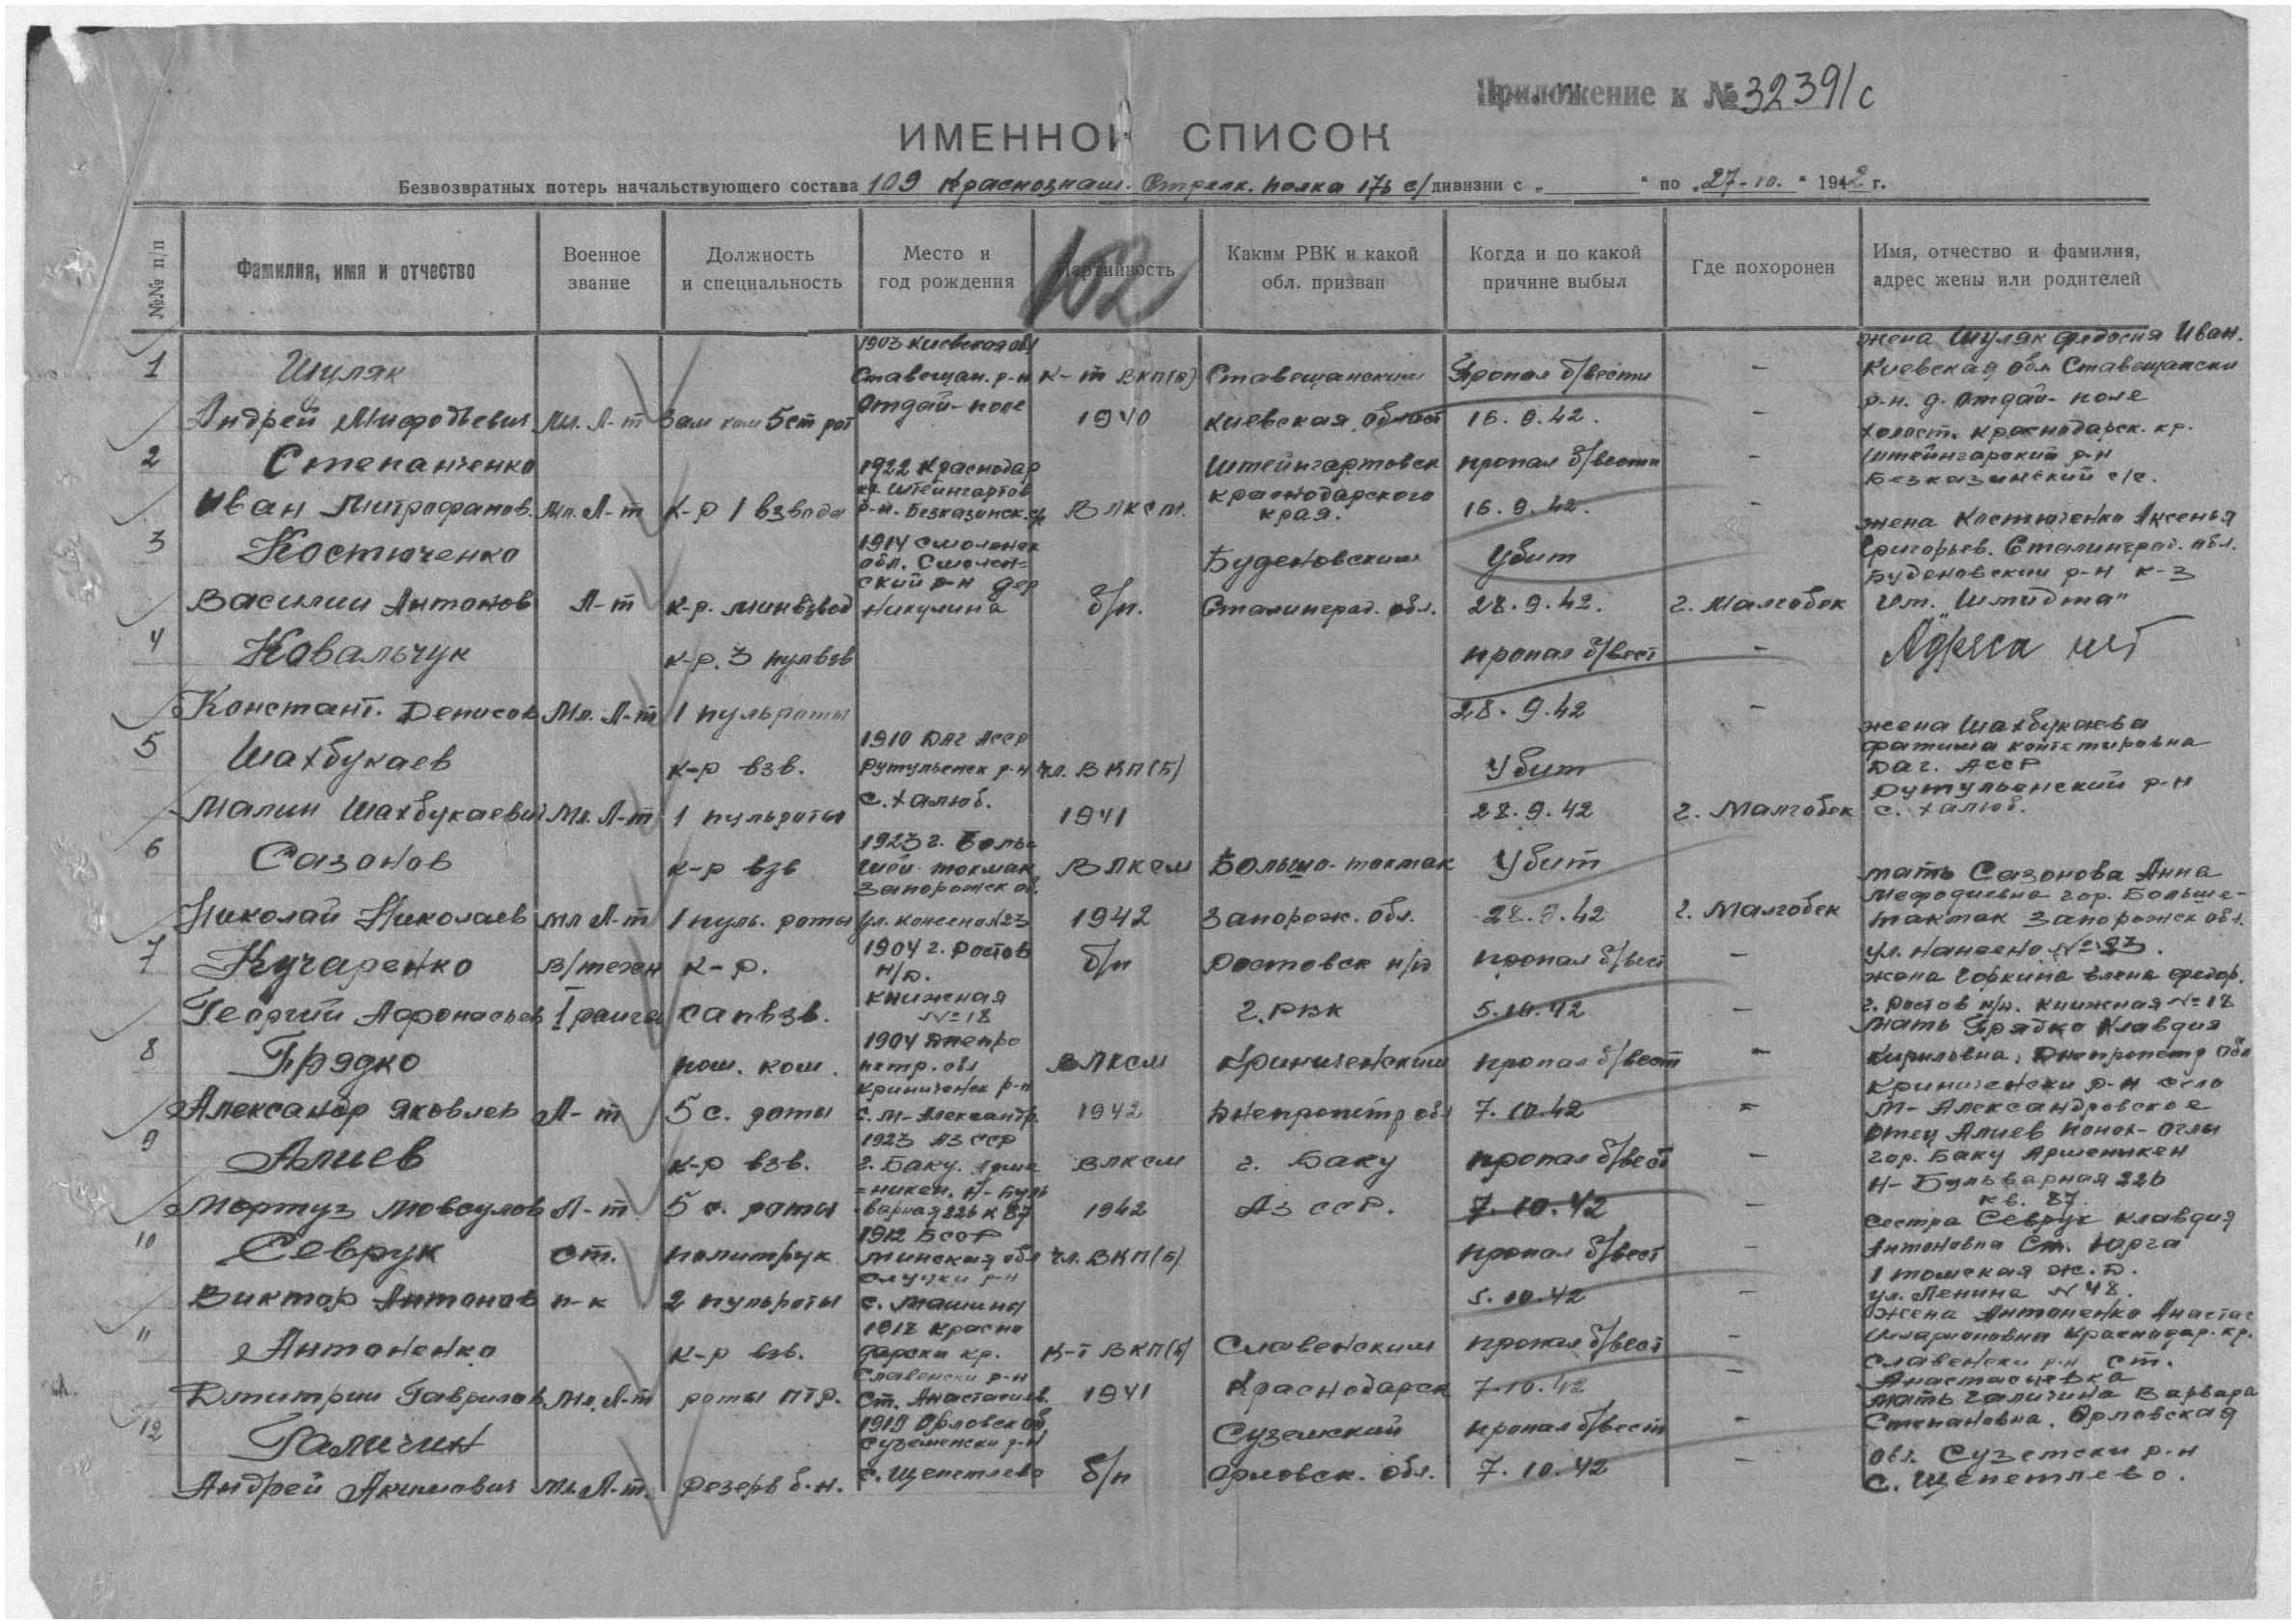 Приложение к № 32391/с
ИМЕННОЙ СПИСОК
Безвозвратных потерь начальствующего состава 109 Краснознам. Стрелк. полка 176 с/дивизии с „ “ по „27-10.“ 1942 г.
№№ п/п
Фамилия, имя и отчество
Военное звание
Должность и специальность
Место и год рождения
Партийность
Каким РВК и какой обл. призван
Когда и по какой причине выбыл
Где похоронен
Имя, отчество и фамилия, адрес жены или родителей
102
1
Шуляк
Андрей Мифодьевич
Мл. Л-т
Зам ком 5 ст рот
1903 Киевская обл
Ставещан. р-н
Отдай-поле
К-т ВКП(б)
1940
Ставещанским
Киевская област
Пропал б/вести
16.9.42.
–
–
жена Шуляк Федостя Иван.
Киевская обл Ставещански
р-н. д. Отдай-поле
2
Степанченко
Иван Митрофанов.
Мл. Л-т
К-р 1 взвода
1922 Краснодар
кр. Штейнгартов
р-н. Безказинск. с/с
ВЛКСМ.
Штейнгартовск
Краснодарского
края.
пропал б/вести
16.9.42.
–
–
холост. Краснодарск. кр.
Штейнгарский р-н
Безказинский с/с.
3
Костюченко
Василии Антонов
Л-т
К-р. минвзвод
1914 Смоленск
обл. Смолен-
ский р-н дер
Никулина
б/п.
Буденовским
Сталинград. обл.
Убит
28.9.42.
г. Малгобек
жена Костюченко Аксенья
Григорьев. Сталинград. обл.
Буденовским р-н к-з
им. "Шмидта"
4
Ковальчук
Констант. Денисов
Мл. Л-т
к-р. 3 пульвзв
1 пульроты
пропал б/вест
28.9.42
–
–
Адреса нет
5
Шахбукаев
Малин Шахбукаевич
Мл. Л-т
к-р взв.
1 пульроты
1910 Даг АССР
Рутульенск р-н
с. Халюб.
чл. ВКП(б)
1941
Убит
28.9.42
г. Малгобек
жена Шахбукаева
Фатима
Даг. АССР
Рутульенский р-н
с. Халюб.
6
Сазонов
Николай Николаев
мл Л-т
к-р взв
1 пуль. роты
1923 г. Боль-
шой токмак
Запорожск об.
ВЛКСМ
1942
Больш-токмак
Запорож. обл.
Убит
28.9.42
г. Малгобек
мать Сазонова Анна
Мефодиевна гор. Больше-
токмак Запорожск обл.
7
Кучаренко
Георгий Афонасьев
в/техн
I ранга
к-р.
сапвзв.
1904 г. Ростов
н/Д.
Книжная
№ 18
б/п
Ростовск н/Д
г. РВК
пропал б/вест
5.10.42
–
–
жена Горкина Елена Федор.
г. Ростов н/Д. Книжная № 18
8
Грядко
Александр Яковлев
Л-т
пом. ком.
5 с. роты
1904 Днепро
петр. обл
Криниченск р-н
с. М-Александр.
ВЛКСМ
1942
Криниченским
Днепропетр обл
пропал б/вест
7.10.42
–
–
мать Грядко Клавдия
Кириловна. Днепропетр обл
Криниченски р-н село
М-Александровское
9
Алиев
Мортуз Мовсулов
Л-т
к-р взв.
5 с. роты
1923 Аз ССР
г. Баку. Арме
-никен. Н-Буль
варная 226 к 87
ВЛКСМ
1942
г. Баку
Аз ССР.
пропал б/вест
7.10.42
–
–
отец Алиев
гор. Баку Арменикен
Н-Бульварная 226
кв. 87.
10
Севрук
Виктор Антонов
ст.
п-к
политрук
2 пульроты
1912 БССР
Минская обл
Слуцки р-н
с. Машина
чл. ВКП(б)
пропал б/вест
5.10.42
–
–
сестра Севрук Клавдия
Антоновна Ст. Юрга
1 томская ж.д.
ул. Ленина № 48.
11
Антоненко
Дмитрии Гаврилов
мл. Л-т
к-р взв.
роты ПТР.
1918 Красно
дарски кр.
Славенски р-н
ст. Анастасиев.
К-т ВКП(б)
1941
Славенским
Краснодарск
пропал б/вест
7.10.42
–
–
жена Антоненко Анастас
Илларионовна Краснодар. кр.
Славенски р-н ст.
Анастасиевка
12
Галичин
Андрей Акимович
мл. Л-т.
Резерв б.н.
1919 Орловск об
Суземенски р-н
с. Щепетлево
б/п
Суземский
Орловск. обл.
пропал б/вест
7.10.42
–
–
мать Галичина Варвара
Степановна. Орловская
обл. Суземски р-н
с. Щепетлево.